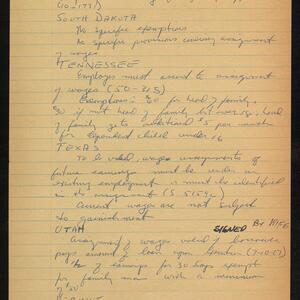 (10-1731)
SOUTH DAKOTA
No specific exemptions
No specific provisions covering assignment
of wages
TENNESSEE
Employer must assent to assignment
of wages (50-315)
Exemptions: for head of family,
if not head of family but over 16, head
of family gets additional per month
for dependent child under 16
TEXAS
To be valid, wage assignments of
future earnings must be under an
existing employment & must be identified
in the assignment
Current wages are not subject
to garnishment
UTAH SIGNED BY WIFE
Assignment of wages valid if borrower
pays amount of loan upon
of earnings for 30 days exempt
for family man with a minimum
of